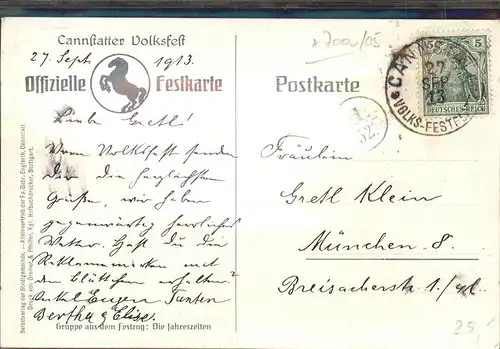 Cannstatter Volksfest
27. Sept. 1913.
Offizielle Festkarte
Liebe Gretl!
Vom Volksfest senden
Dir die herzlichsten
Grüsse, wir haben
gegenwärtig herrliches
Wetter. Hast du die
Reklamemarken mit
den Blättchen erhalten?
Onkel Eugen Tanten
Bertha & Elise.
Gruppe aus dem Festzug: Die Jahreszeiten
Selbstverlag der Stadtgemeinde. — Alleinvertrieb der Fa. Gebr. Englerth, Cannstatt
Druck von Greiner & Pfeiffer, Kgl. Hofbuchdrucker, Stuttgart.
Postkarte
*7000/05
CANNSTATT
27
SEP
13
VOLKS-FEST
5
DEUTSCHES REICH
Fräulein
Gretl Klein
München 8.
Breisacherst. 1/
25,-